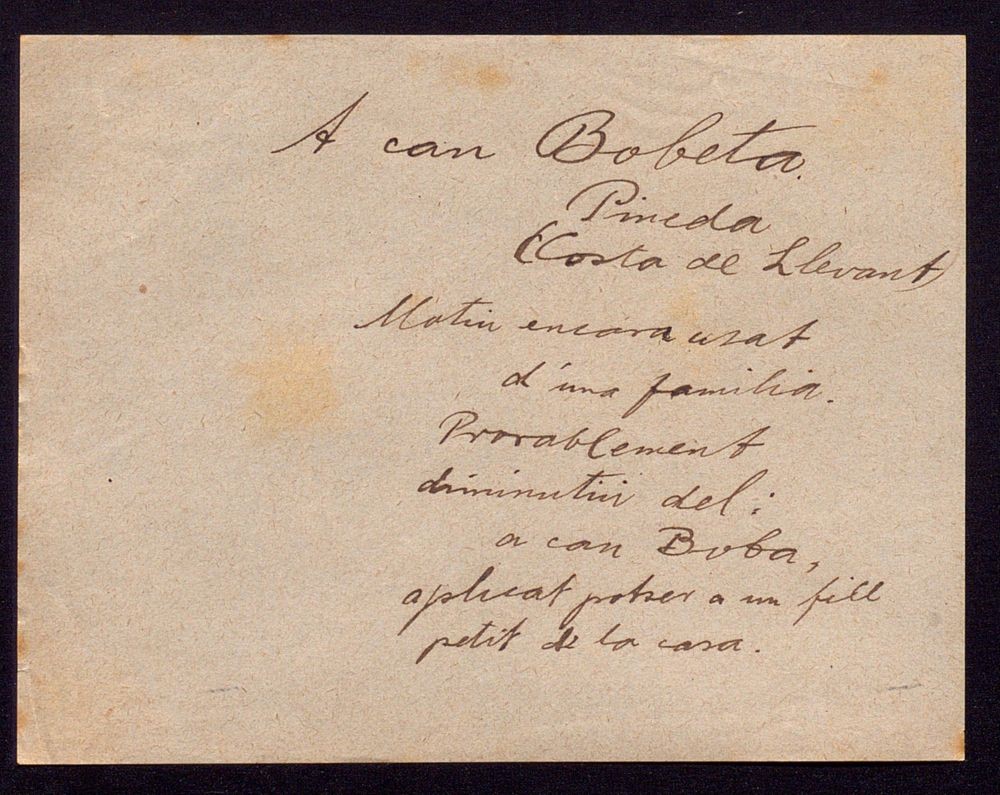 A can Bobeta.
Pineda
(Costa de Llevant)
Motiu encara usat
d'una familia.
Provablement
diminutiu del:
a can Boba,
aplicat potser a un fill
petit de la casa.